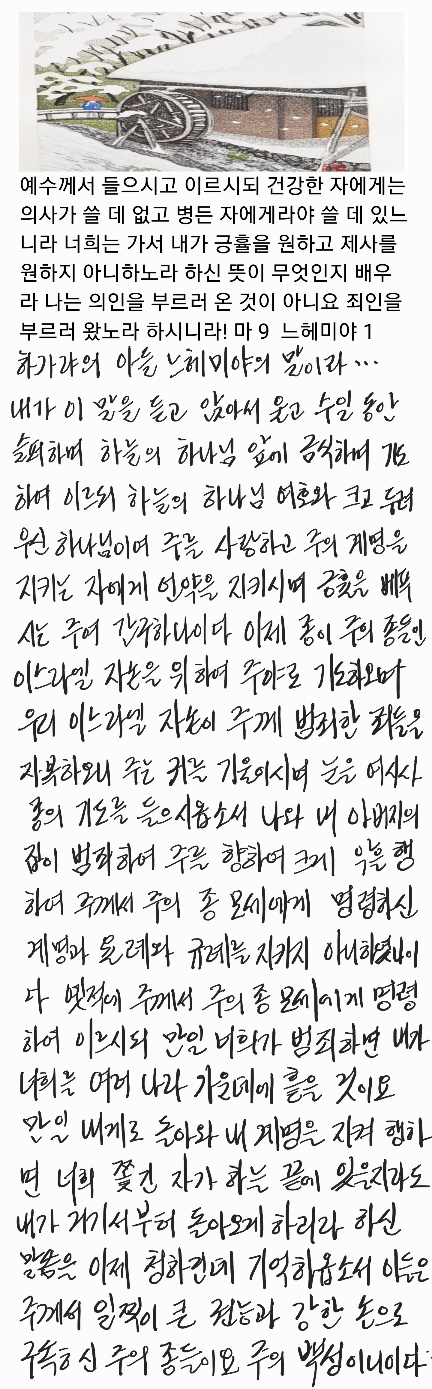 예수께서 들으시고 이르시되 건강한 자에게는
의사가 쓸 데 없고 병든 자에게라야 쓸 데 있느
니라 너희는 가서 내가 긍휼을 원하고 제사를
원하지 아니하노라 하신 뜻이 무엇인지 배우
라 나는 의인을 부르러 온 것이 아니요 죄인을
부르러 왔노라 하시니라! 마 9 느헤미야 1
하가랴의 아들 느헤미야의 말이라 ...
내가 이 말을 듣고 앉아서 울고 수일 동안
슬퍼하며 하늘의 하나님 앞에 금식하며 기도
하여 이르되 하늘의 하나님 여호와 크고 두려
우신 하나님이여 주를 사랑하고 주의 계명을
지키는 자에게 언약을 지키시며 긍휼을 베푸
시는 주여 간구하나이다 이제 종이 주의 종들인
이스라엘 자손을 위하여 주야로 기도하오며
우리 이스라엘 자손이 주께 범죄한 죄들을
자복하오니 주는 귀를 기울이시며 눈을 여시사
종의 기도를 들으시옵소서 나와 내 아버지의
집이 범죄하여 주를 향하여 크게 악을 행
하여 주께서 주의 종 모세에게 명령하신
계명과 율례와 규례를 지키지 아니하였나이
다 옛적에 주께서 주의 종 모세에게 명령
하여 이르시되 만일 너희가 범죄하면 내가
너희를 여러 나라 가운데에 흩을 것이요
만일 내게로 돌아와 내 계명을 지켜 행하
면 너희 쫓긴 자가 하늘 끝에 있을지라도
내가 거기서부터 돌아오게 하리라 하신
말씀을 이제 청하건대 기억하옵소서 이들은
주께서 일찍이 큰 권능과 강한 손으로
구속하신 주의 종들이요 주의 백성이니이다